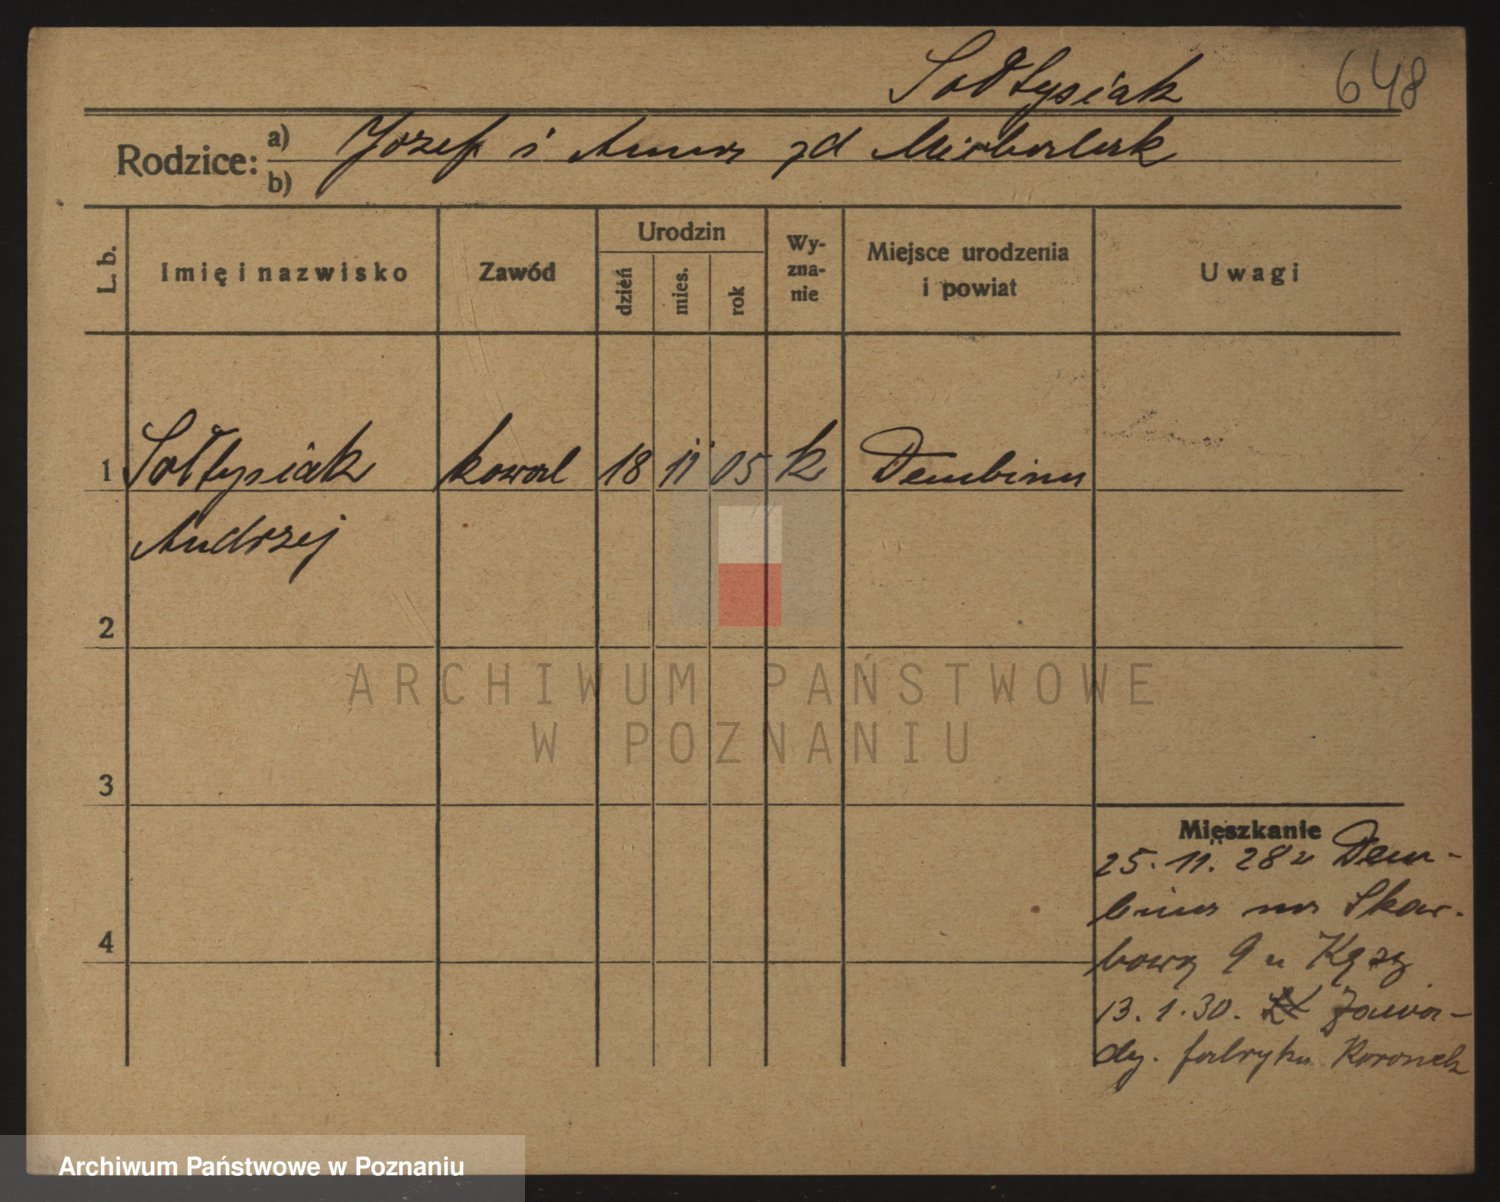 Sołtysiak 648
Rodzice: a) Józef i Anna zd Michalak
b)
L. b. Imię i nazwisko Zawód Urodzin dzień mies. rok Wy-zna-nie Miejsce urodzenia i powiat Uwagi
1 Sołtysiak kowal 18 11 05 k Dembina
Andrzej
2
3
4
Mieszkanie
25. 11. 28 z Dem-
bina na Skar-
bową 9 u
13. 1. 30. Zawa-
dy. fabryka
ARCHIWUM PAŃSTWOWE
W POZNANIU
Archiwum Państwowe w Poznaniu